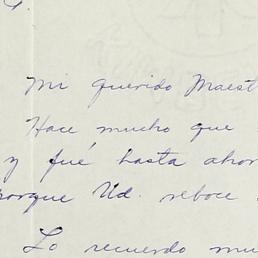 Mi querido Maest
Hace mucho que
y fué hasta ahor
porque Ud. reboce
Lo recuerdo mu